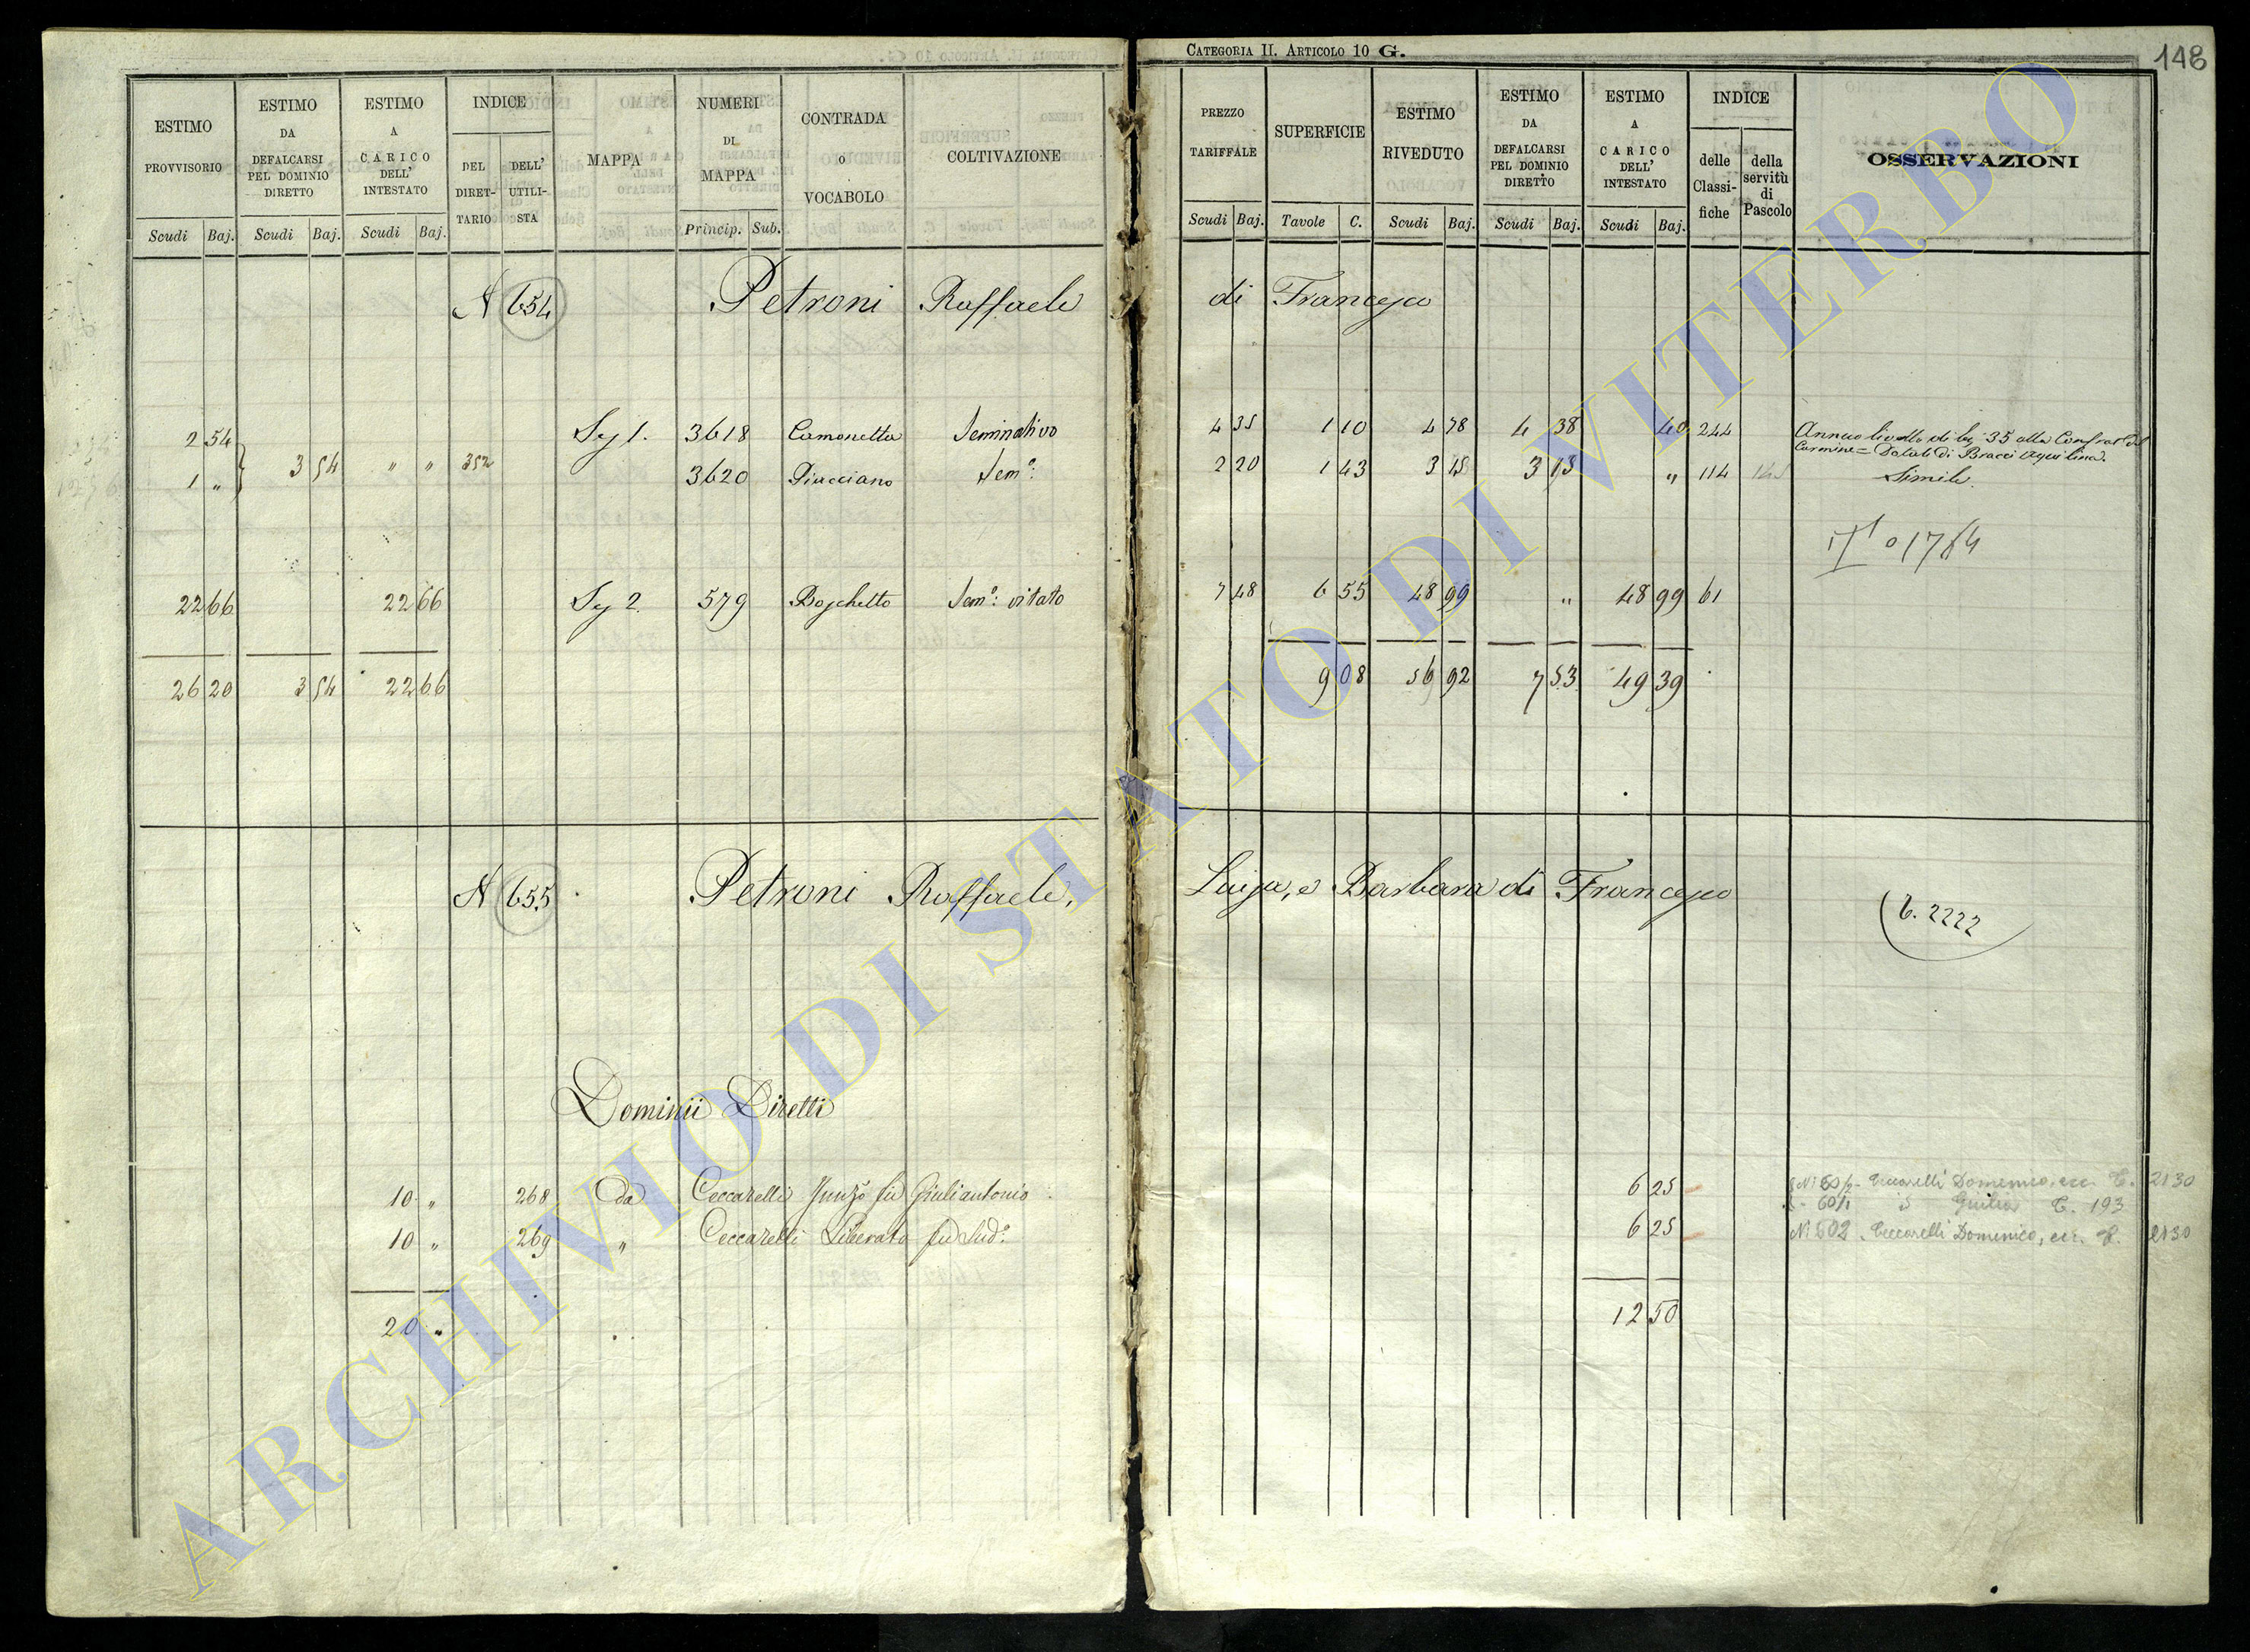 CATEGORIA II. ARTICOLO 10 G.
148
ESTIMO PROVVISORIO
Scudi Baj.
ESTIMO DA DEFALCARSI PEL DOMINIO DIRETTO
Scudi Baj.
ESTIMO A CARICO DELL' INTESTATO
Scudi Baj.
INDICE
DEL DIRET-TARIO
DELL' UTILI-STA
MAPPA
NUMERI DI MAPPA
Princip. Sub.
CONTRADA o VOCABOLO
COLTIVAZIONE
PREZZO TARIFFALE
Scudi Baj.
SUPERFICIE
Tavole C.
ESTIMO RIVEDUTO
Scudi Baj.
ESTIMO DA DEFALCARSI PEL DOMINIO DIRETTO
Scudi Baj.
ESTIMO A CARICO DELL' INTESTATO
Scudi Baj.
INDICE
delle Classi-fiche
della servitù di Pascolo
OSSERVAZIONI
N 654 Petroni Raffaele di Francesco
2 54 Sez 1. 3618 Camonetta Seminativo 4 35 1 10 4 78 4 38 40 244 Annuo livello di baj 35 alla Confrat del Carmine = Dotali di Bracci Aquilina.
1 " 3 54 " " 352 3620 Piacciano Sem°: 2 20 1 43 3 15 3 15 " 114 Simile.
22 66 22 66 Sez 2. 579 Boschetto Sem°: vitato 7 48 6 55 48 99 " 48 99 61
26 20 3 54 22 66 9 08 56 92 7 53 49 39
N 655 Petroni Raffaele, Luisa, e Barbara di Francesco
2222
Dominii Diretti
10 " 268 Da Ceccarelli fu Giuliantonio 6 25 Ceccarelli Domenico, ecc. C. 2130
Giulia C. 193
10 " 269 " Ceccarelli Liberato fu Sud°: 6 25 N: 602 Ceccarelli Domenico, ecc. C. 2130
20 " 12 50
ARCHIVIO DI STATO DI VITERBO